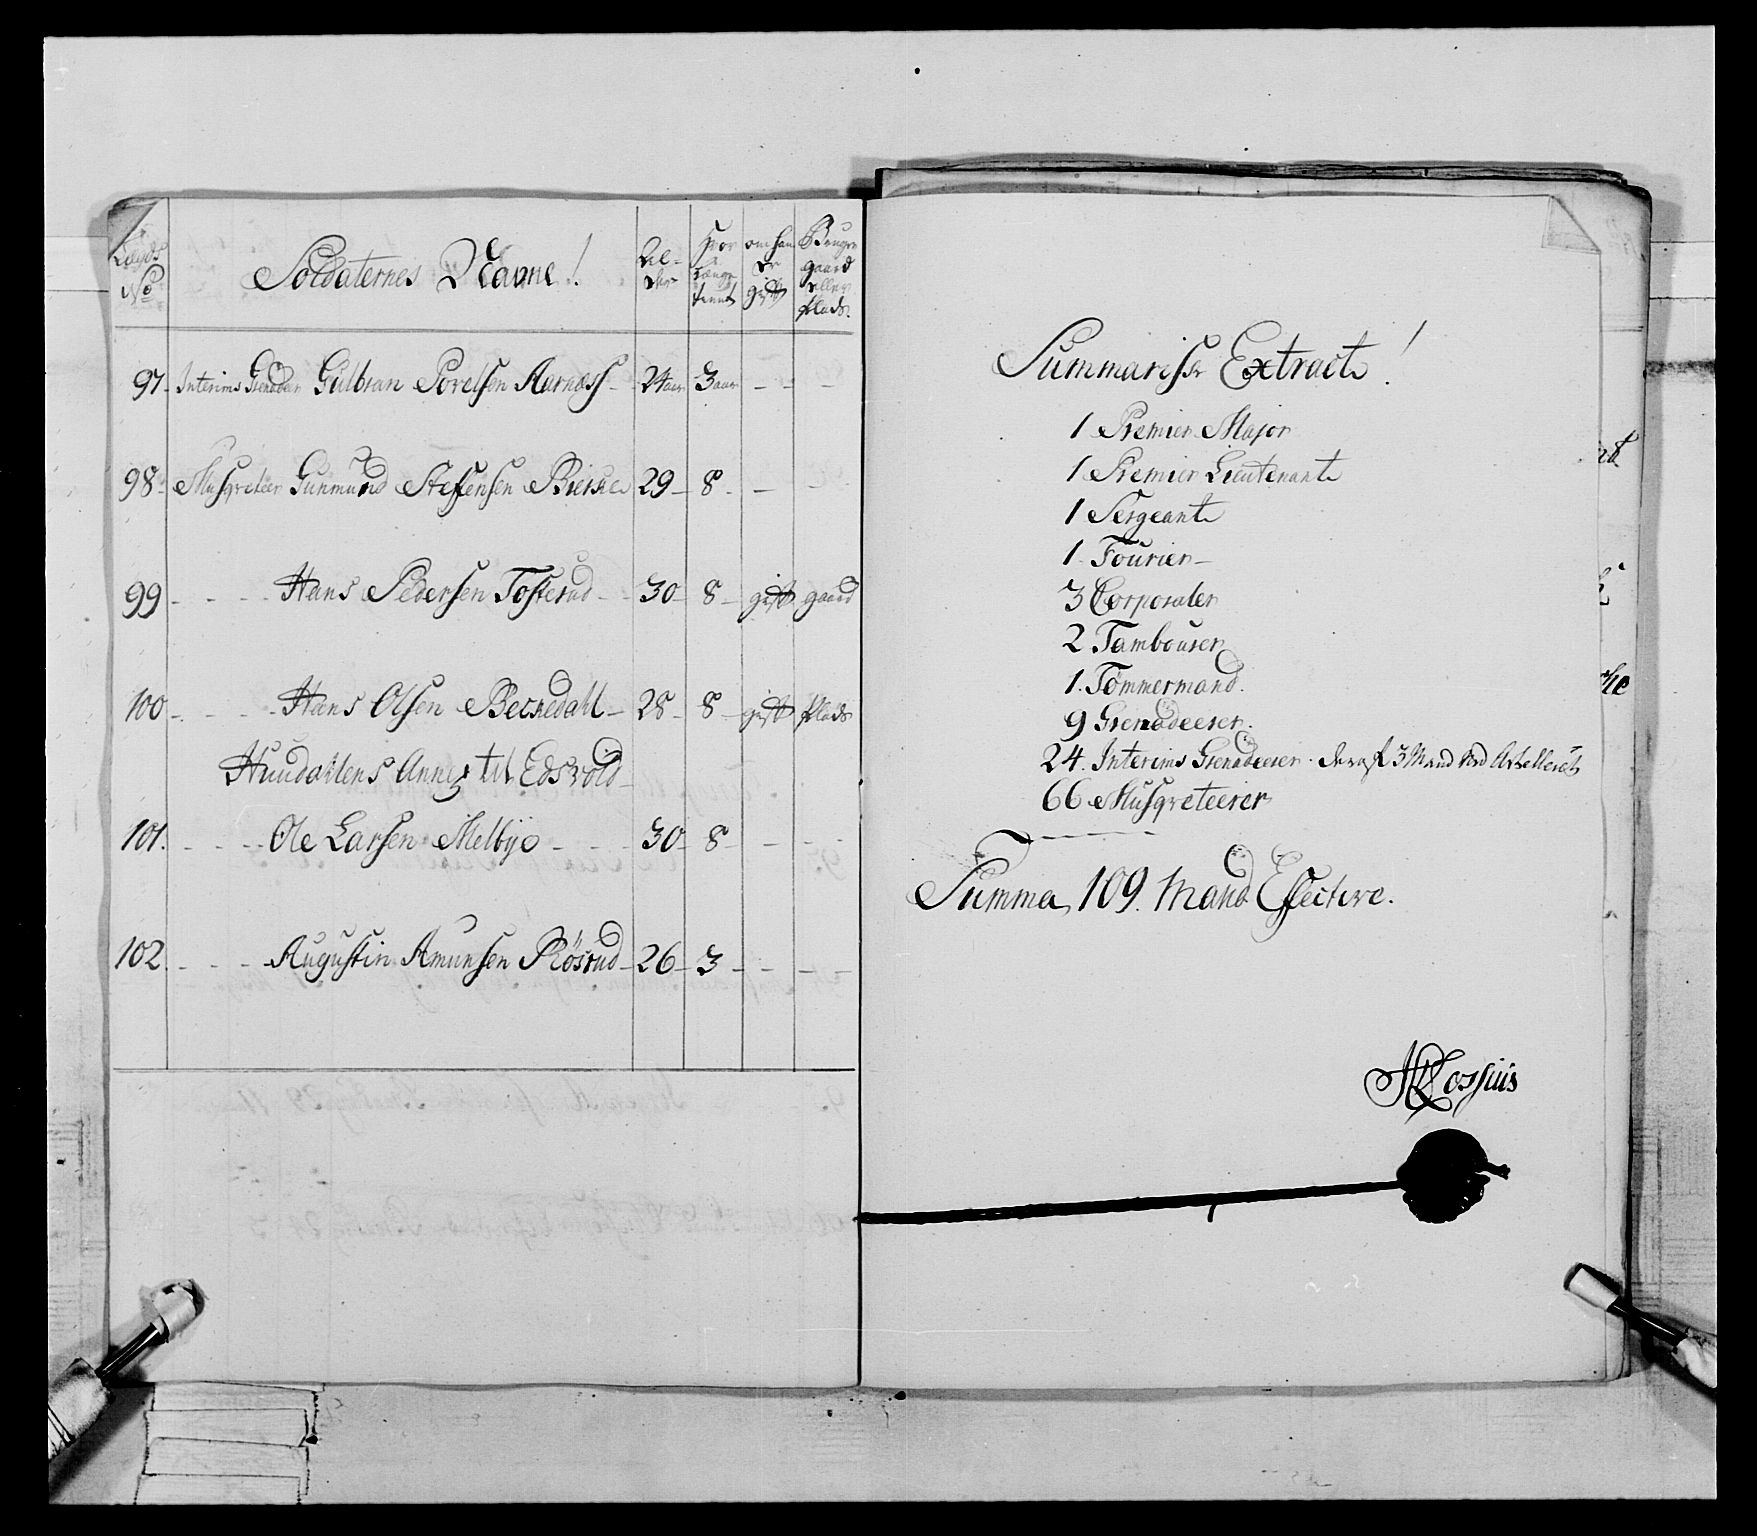 Lægds No
Soldaternes Navne!
Al-der
Hvor længe tient
om han er gift
Bruger gaard eller plads.
97. Interims Grenader Gulbran Porelsen Aarness - 24 aar 3 aar - - -
98. Musqveteer Gunmund Steffensen Bierke 29 - 8 - -
99 - - - Hans Pedersen Tosterud - 30 - 8 - gift gaard
100 - - - Hans Olsen Beckedahl - 28 - 8 - gift plads
Huudallens Annex til Edsvold -
101. - - - Ole Larsen Melbye - - - 30 - 8 - - - -
102. - - - Augustin Amunsen Røsrud - 26 - 3 - - - -
Summarisk Extract!
1 Premier Major
1 Premier Lieutenant
1 Sergeant
1 Fourier -
3 Corporaler
2. Tambourer
1. Tømmermand.
9 Grenadeerer.
24. Interims Grenadeerer. deraf 3 Mand ved
66 Musqveteerer
Summa 109. Mand Effective.
Lossius